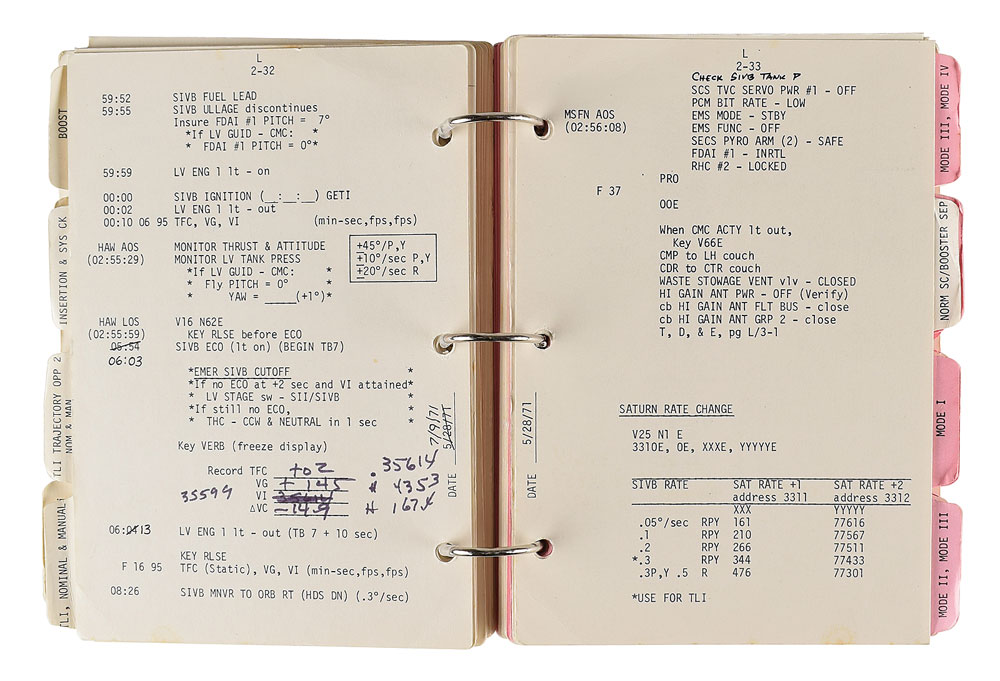 L
2-32
59:52 SIVB FUEL LEAD
59:55 SIVB ULLAGE discontinues
Insure FDAI #1 PITCH = 7°
*If LV GUID - CMC: *
* FDAI #1 PITCH = 0°*
59:59 LV ENG 1 lt - on
00:00 SIVB IGNITION (__:__:__) GETI
00:02 LV ENG 1 lt - out
00:10 06 95 TFC, VG, VI (min-sec,fps,fps)
HAW AOS MONITOR THRUST & ATTITUDE
(02:55:29) MONITOR LV TANK PRESS
*If LV GUID - CMC: *
* Fly PITCH = 0° *
* YAW = ____(+1°)*
+45°/P,Y
+10°/sec P,Y
+20°/sec R
HAW LOS V16 N62E
(02:55:59) KEY RLSE before ECO
05:54 SIVB ECO (lt on) (BEGIN TB7)
06:03
*EMER SIVB CUTOFF *
*If no ECO at +2 sec and VI attained*
* LV STAGE sw - SII/SIVB *
*If still no ECO, *
* THC - CCW & NEUTRAL in 1 sec *
Key VERB (freeze display)
Record TFC +02 . 35614
VG + 145 H 4353
35599 VI
ΔVC -14.9 H 167.4
06:04 13 LV ENG 1 lt - out (TB 7 + 10 sec)
KEY RLSE
F 16 95 TFC (Static), VG, VI (min-sec,fps,fps)
08:26 SIVB MNVR TO ORB RT (HDS DN) (.3°/sec)
DATE 5/28/71
7/9/71
BOOST
INSERTION & SYS CK
TLI TRAJECTORY OPP 2
NOM & MAN
TLI, NOMINAL & MANUAL
L
2-33
CHECK SIVB TANK P
SCS TVC SERVO PWR #1 - OFF
PCM BIT RATE - LOW
MSFN AOS EMS MODE - STBY
(02:56:08) EMS FUNC - OFF
SECS PYRO ARM (2) - SAFE
FDAI #1 - INRTL
RHC #2 - LOCKED
PRO
F 37
OOE
When CMC ACTY lt out,
Key V66E
CMP to LH couch
CDR to CTR couch
WASTE STOWAGE VENT vlv - CLOSED
HI GAIN ANT PWR - OFF (Verify)
cb HI GAIN ANT FLT BUS - close
cb HI GAIN ANT GRP 2 - close
T, D, & E, pg L/3-1
SATURN RATE CHANGE
V25 N1 E
3310E, 0E, XXXE, YYYYYE
SIVB RATE SAT RATE +1 SAT RATE +2
address 3311 address 3312
XXX YYYYY
.05°/sec RPY 161 77616
.1 RPY 210 77567
.2 RPY 266 77511
*.3 RPY 344 77433
.3P,Y .5 R 476 77301
*USE FOR TLI
DATE 5/28/71
MODE III, MODE IV
NORM SC/BOOSTER SEP
MODE I
MODE II, MODE III